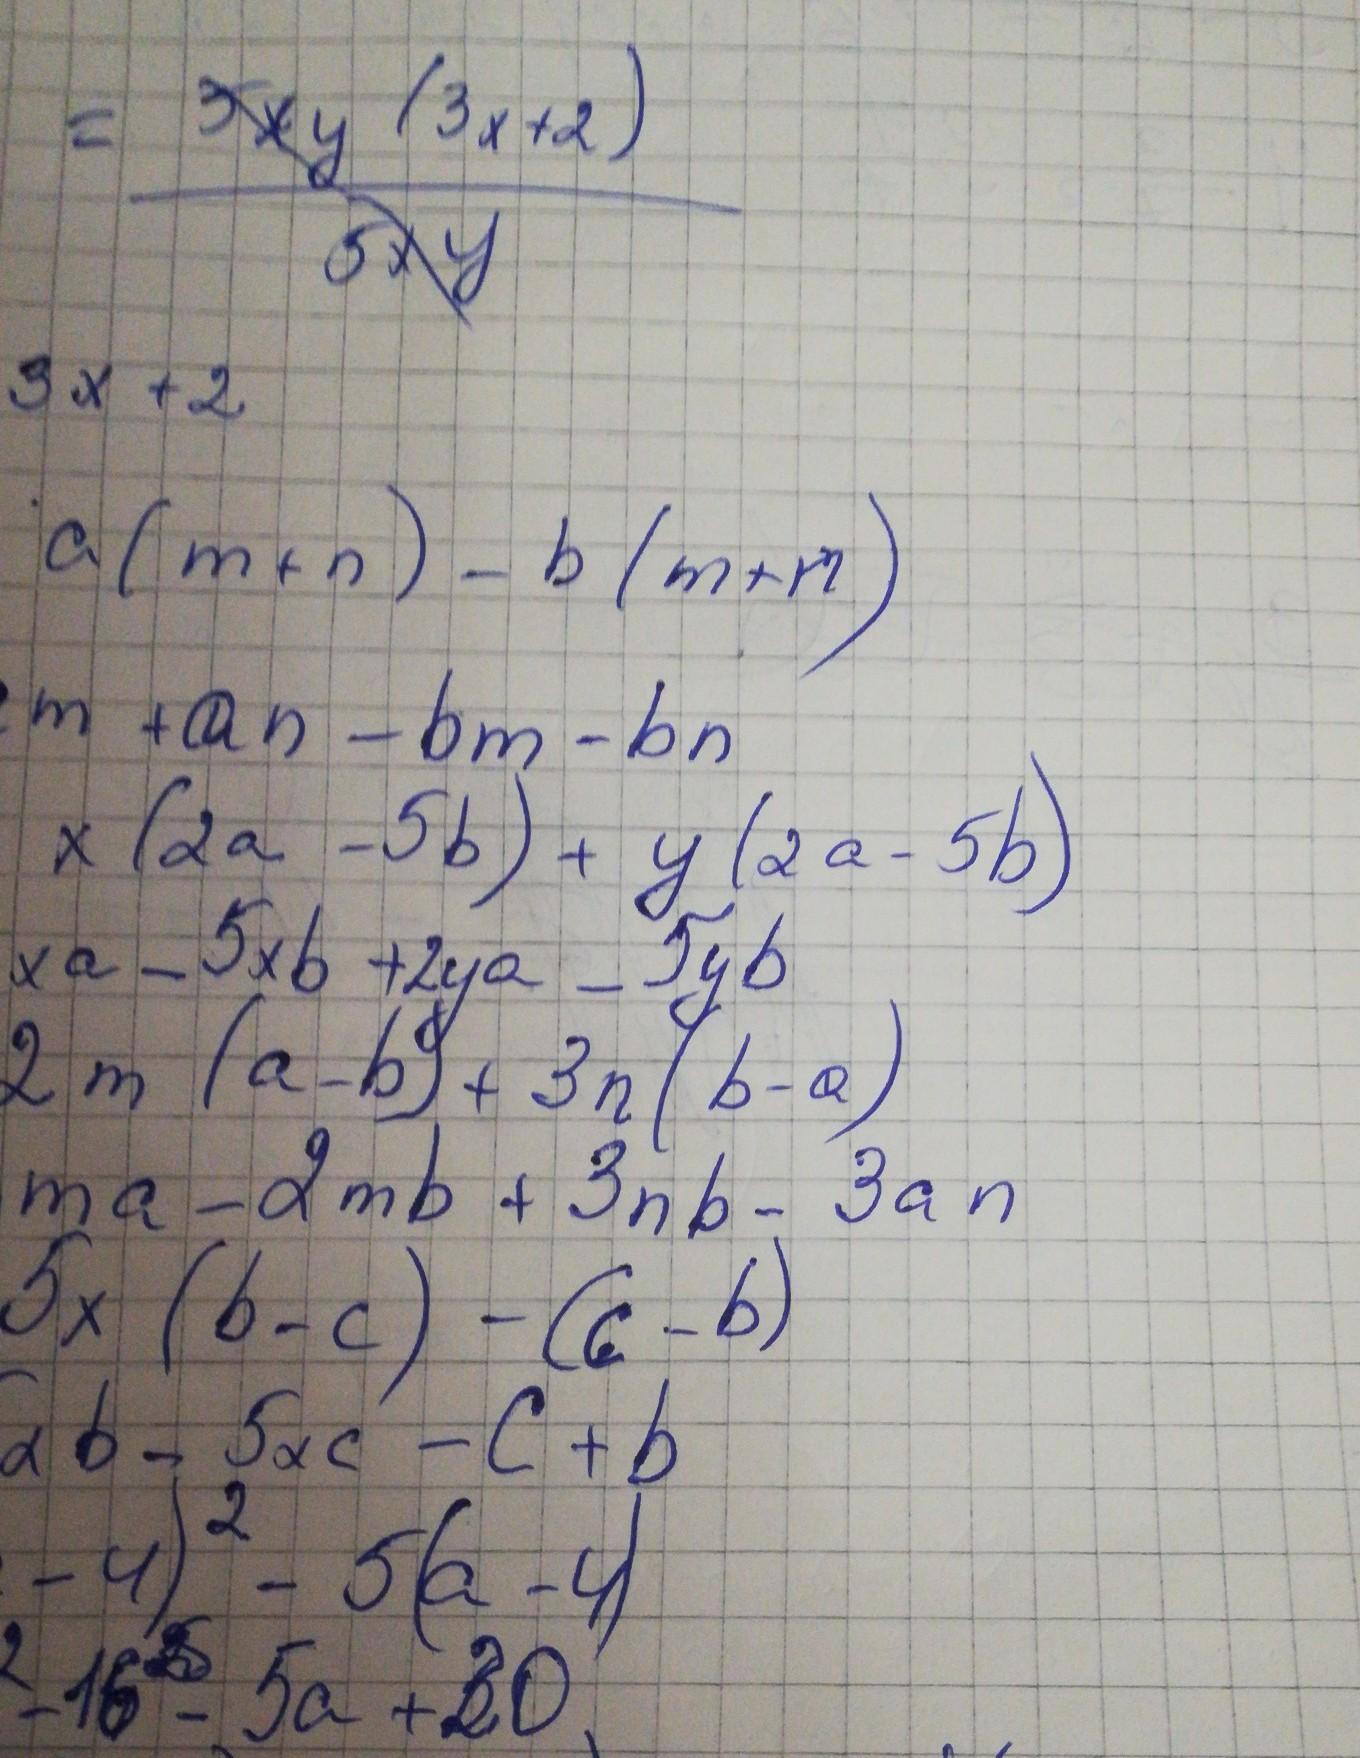 = 5xy (3x+2)
5xy
3x + 2
a(m+n) - b(m+n)
m + an - bm - bn
x(2a - 5b) + y(2a - 5b)
xa - 5xb + 2ya - 5yb
2m (a-b) + 3n(b-a)
ma - 2mb + 3nb - 3an
5x (b-c) - (c-b)
xb - 5xc - c + b
-4)² - 5(a-4)
² - 16 - 5a + 20